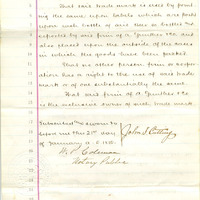 That said trade mark is used by print-
ing the same upon labels which are pasted
upon each bottle of and
by said firm of A. & Co. and
also placed upon the outside of the cases
in which the goods have been packed.
That no other person firm or corpo-
ration has a right to the use of said trade
mark or of one substantially the same.
That said firm of A. & Co.
is the exclusive owner of said trade mark
Subscribed & sworn to
before me this 21st day
of January A.D. 1880.
John S. Cutting
Coleman
Notary Public